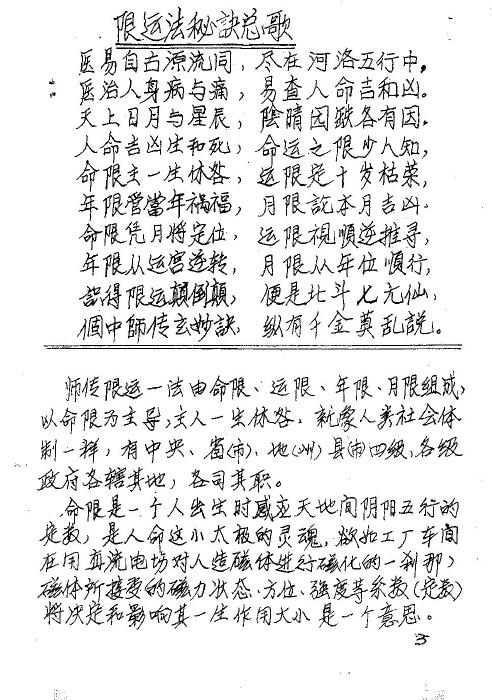 限运法秘訣总歌
医易自古源流同，尽在河洛五行中。
医治人身病与痛，易查人命吉和凶。
天上日月与星辰，陰晴因缺各有因。
人命吉凶生和死，命运之限少人知，
命限主一生休咎，运限定十岁枯荣，
年限管當年祸福，月限説本月吉凶．
命限凭月将定位，运限視順逆推寻，
年限从运宫逆转，月限从年位順行，
認得限运顛倒顛，便是北斗七元仙，
個中師传玄妙訣，纵有千金莫乱説。
师传限运一法由命限、运限、年限、月限组成，
以命限为主导，主人一生休咎，就像人类社会体
制一样，有中央、省(市)、地(州)县(市)四级，各级
政府各辖其地，各司其职。
命限是一个人出生时感应天地间阴阳五行的
定数，是人命这小太极的灵魂，欲如工厂车间
在用交流电场对人造磁体进行磁化的一刹那，
磁体所接受的磁力状态、方位、强度等系数(定数)
将决定和影响其一生作用大小是一个意思。
3